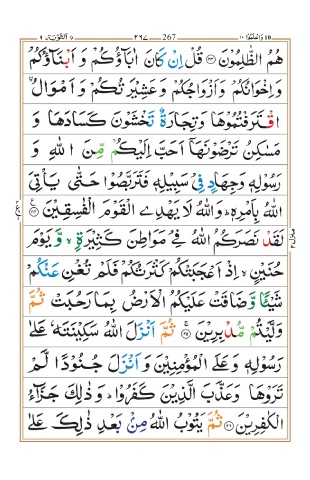 ١٠ واعلموا ٢٦٧ 267 التوبة ٩
هُمُ الظّٰلِمُوْنَ ﴿٢٣﴾ قُلْ اِنْ كَانَ اٰبَآؤُكُمْ وَ اَبْنَآؤُكُمْ
وَاِخْوَانُكُمْ وَاَزْوَاجُكُمْ وَعَشِيْرَتُكُمْ وَ اَمْوَالُ ۨ
اقْتَرَفْتُمُوْهَا وَتِجَارَةٌ تَخْشَوْنَ كَسَادَهَا وَ
مَسٰكِنُ تَرْضَوْنَهَآ اَحَبَّ اِلَيْكُمْ مِّنَ اللّٰهِ وَ
رَسُوْلِهٖ وَجِهَادٍ فِيْ سَبِيْلِهٖ فَتَرَبَّصُوْا حَتّٰى يَاْتِيَ
اللّٰهُ بِاَمْرِهٖ ؕ وَاللّٰهُ لَا يَهْدِى الْقَوْمَ الْفٰسِقِيْنَ ﴿٢٤﴾
لَقَدْ نَصَرَكُمُ اللّٰهُ فِيْ مَوَاطِنَ كَثِيْرَةٍ ۙ وَّ يَوْمَ
حُنَيْنٍ ۙ اِذْ اَعْجَبَتْكُمْ كَثْرَتُكُمْ فَلَمْ تُغْنِ عَنْكُمْ
شَيْـًٔا وَّضَاقَتْ عَلَيْكُمُ الْاَرْضُ بِمَا رَحُبَتْ ثُمَّ
وَلَّيْتُمْ مُّدْبِرِيْنَ ﴿٢٥﴾ ثُمَّ اَنْزَلَ اللّٰهُ سَكِيْنَتَهٗ عَلٰى
رَسُوْلِهٖ وَعَلَى الْمُؤْمِنِيْنَ وَ اَنْزَلَ جُنُوْدًا لَّمْ
تَرَوْهَا وَعَذَّبَ الَّذِيْنَ كَفَرُوْا ؕ وَذٰلِكَ جَزَآءُ
الْكٰفِرِيْنَ ﴿٢٦﴾ ثُمَّ يَتُوْبُ اللّٰهُ مِنْۢ بَعْدِ ذٰلِكَ عَلٰى
منزل ٢